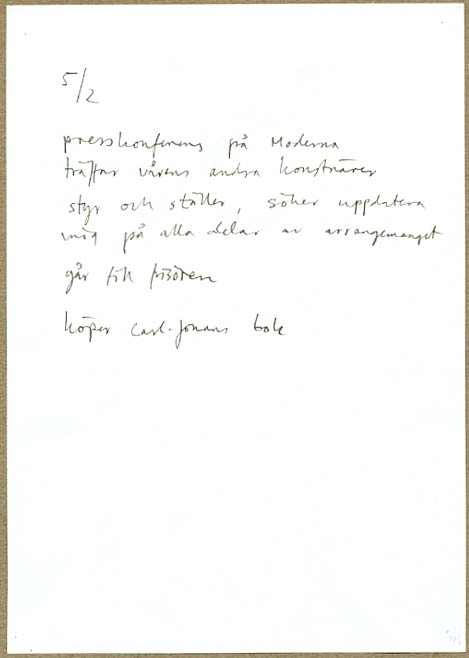 5/2
presskonferens på Moderna
träffar vårens andra konstnärer
styr och ställer, söker uppdatera
mig på alla delar av arrangemanget
går till frisören
köper Carl-Johans bok